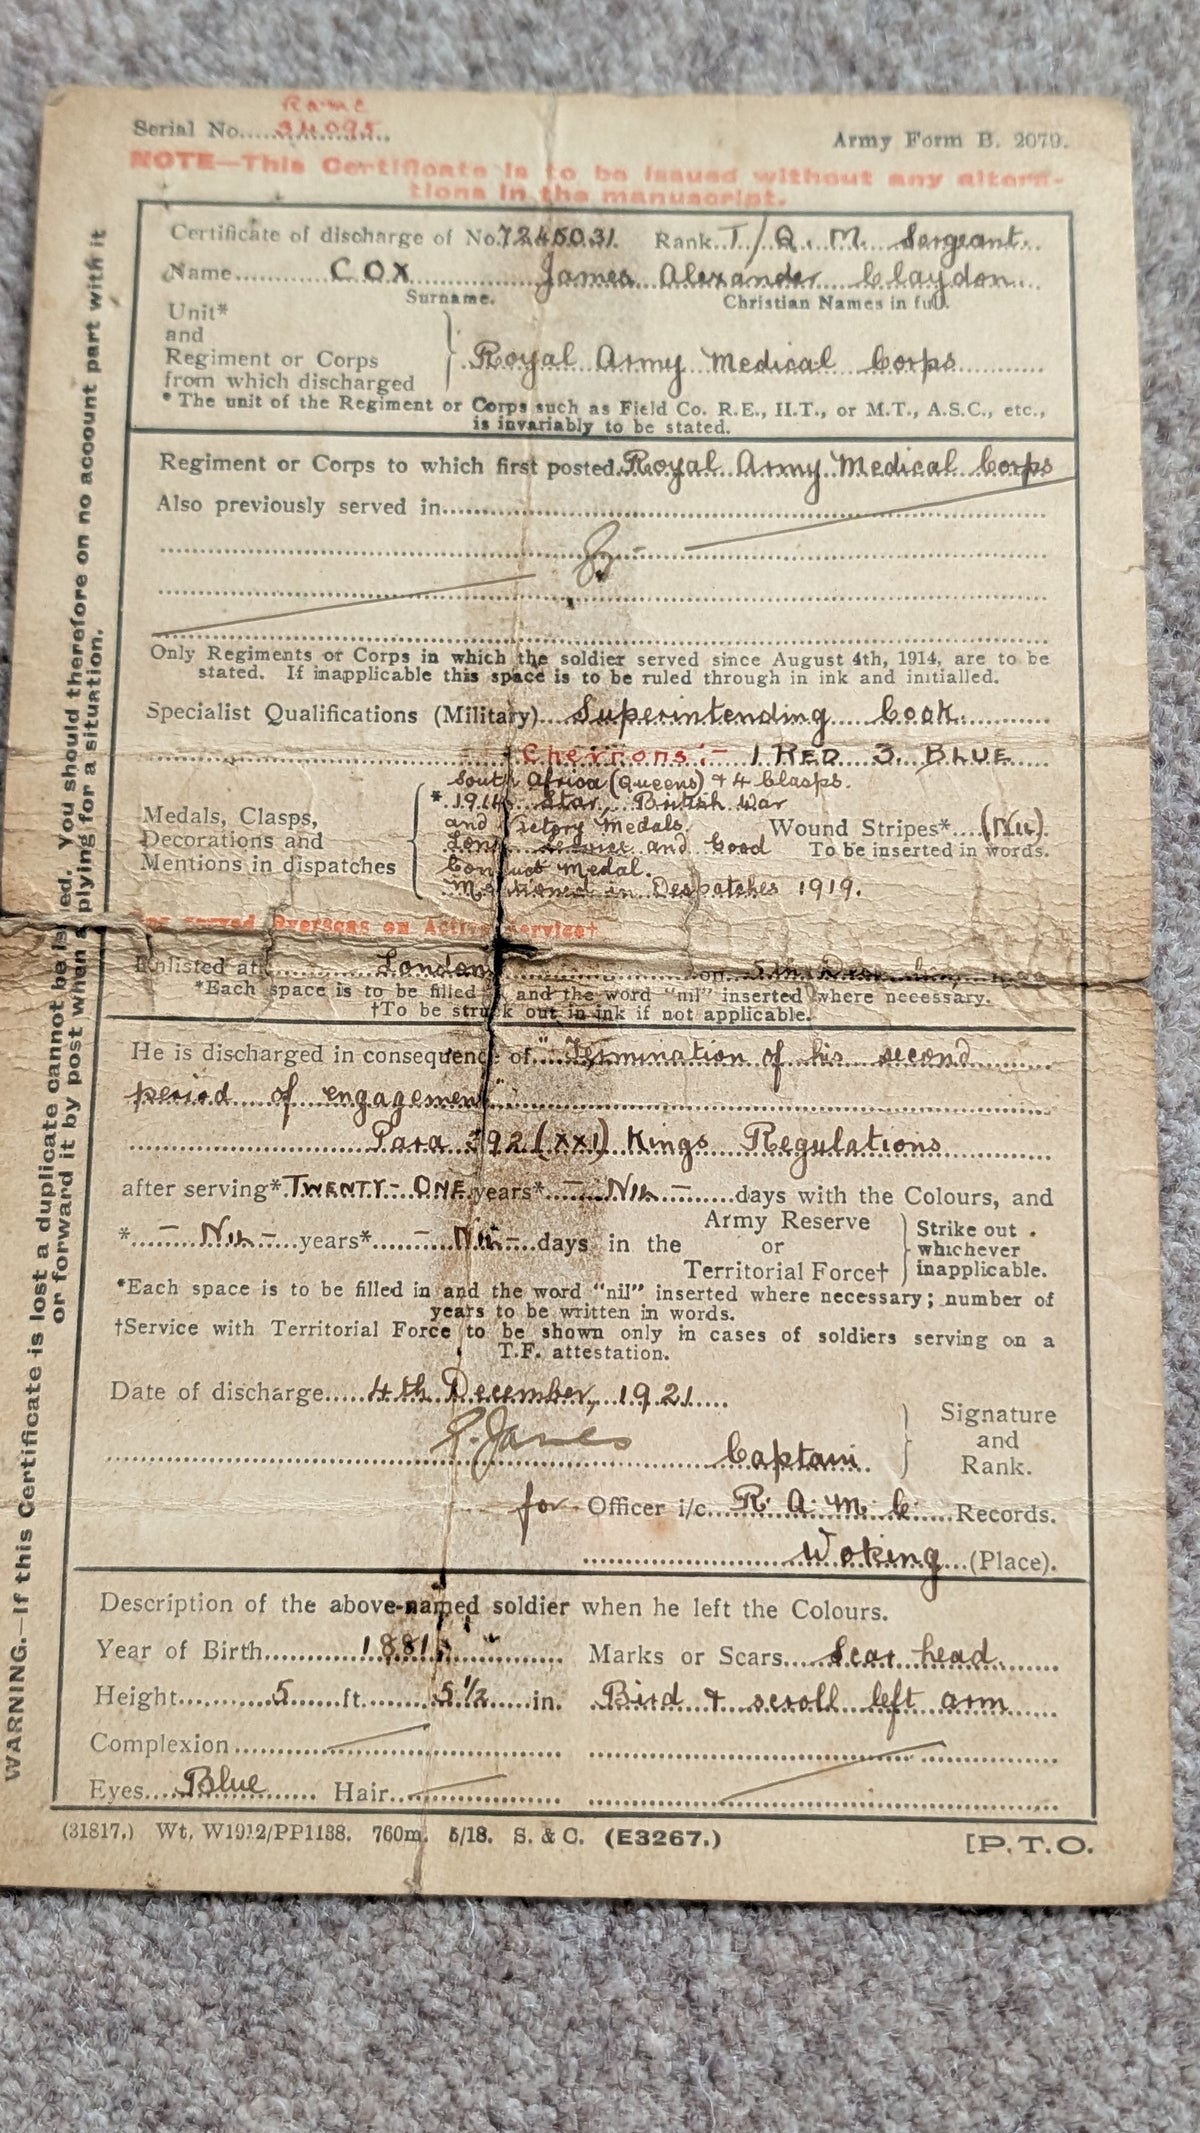 R.A.M.C
Serial No. 34095
Army Form B. 2079.
NOTE—This Certificate is to be issued without any altera-
tions in the manuscript.
Certificate of discharge of No. 7245031. Rank T/Q. M. Sergeant.
Name COX James Alexander Claydon.
Surname. Christian Names in full.
Unit*
and
Regiment or Corps
from which discharged
Royal Army Medical Corps
* The unit of the Regiment or Corps such as Field Co. R.E., H.T., or M.T., A.S.C., etc.,
is invariably to be stated.
Regiment or Corps to which first posted Royal Army Medical Corps
Also previously served in
Only Regiments or Corps in which the soldier served since August 4th, 1914, are to be
stated. If inapplicable this space is to be ruled through in ink and initialled.
Specialist Qualifications (Military) Superintending Cook.
Chevrons:- 1 RED 3 BLUE
Medals, Clasps,
Decorations and
Mentions in dispatches
South Africa (Queens) & 4 Clasps.
* 1914 Star, British War
and Victory Medals.
Long Service and Good
Conduct Medal.
Mentioned in Despatches 1919.
Wound Stripes* (Nil).
To be inserted in words.
Has served Overseas on Active Service†
Enlisted at London on 5th December,
*Each space is to be filled in and the word "nil" inserted where necessary.
†To be struck out in ink if not applicable.
He is discharged in consequence of "Termination of his second
period of engagement"
Para 392 (XXI) Kings Regulations
after serving* TWENTY-ONE years* - NIL - days with the Colours, and
* - NIL - years* - NIL - days in the Army Reserve or Territorial Force†
Strike out
whichever
inapplicable.
*Each space is to be filled in and the word "nil" inserted where necessary; number of
years to be written in words.
†Service with Territorial Force to be shown only in cases of soldiers serving on a
T.F. attestation.
Date of discharge 4th December, 1921
Captain.
Signature
and
Rank.
for Officer i/c R. A. M. C. Records.
Woking (Place).
Description of the above-named soldier when he left the Colours.
Year of Birth 1881 Marks or Scars Scar head.
Height 5 ft. 5 1/2 in. Bird & scroll left arm
Complexion
Eyes Blue Hair
(31817.) Wt. W1912/PP1138. 760m. 5/18. S. & C. (E3267.)
[P.T.O.
WARNING.—If this Certificate is lost a duplicate cannot be issued. You should therefore on no account part with it
or forward it by post when applying for a situation.